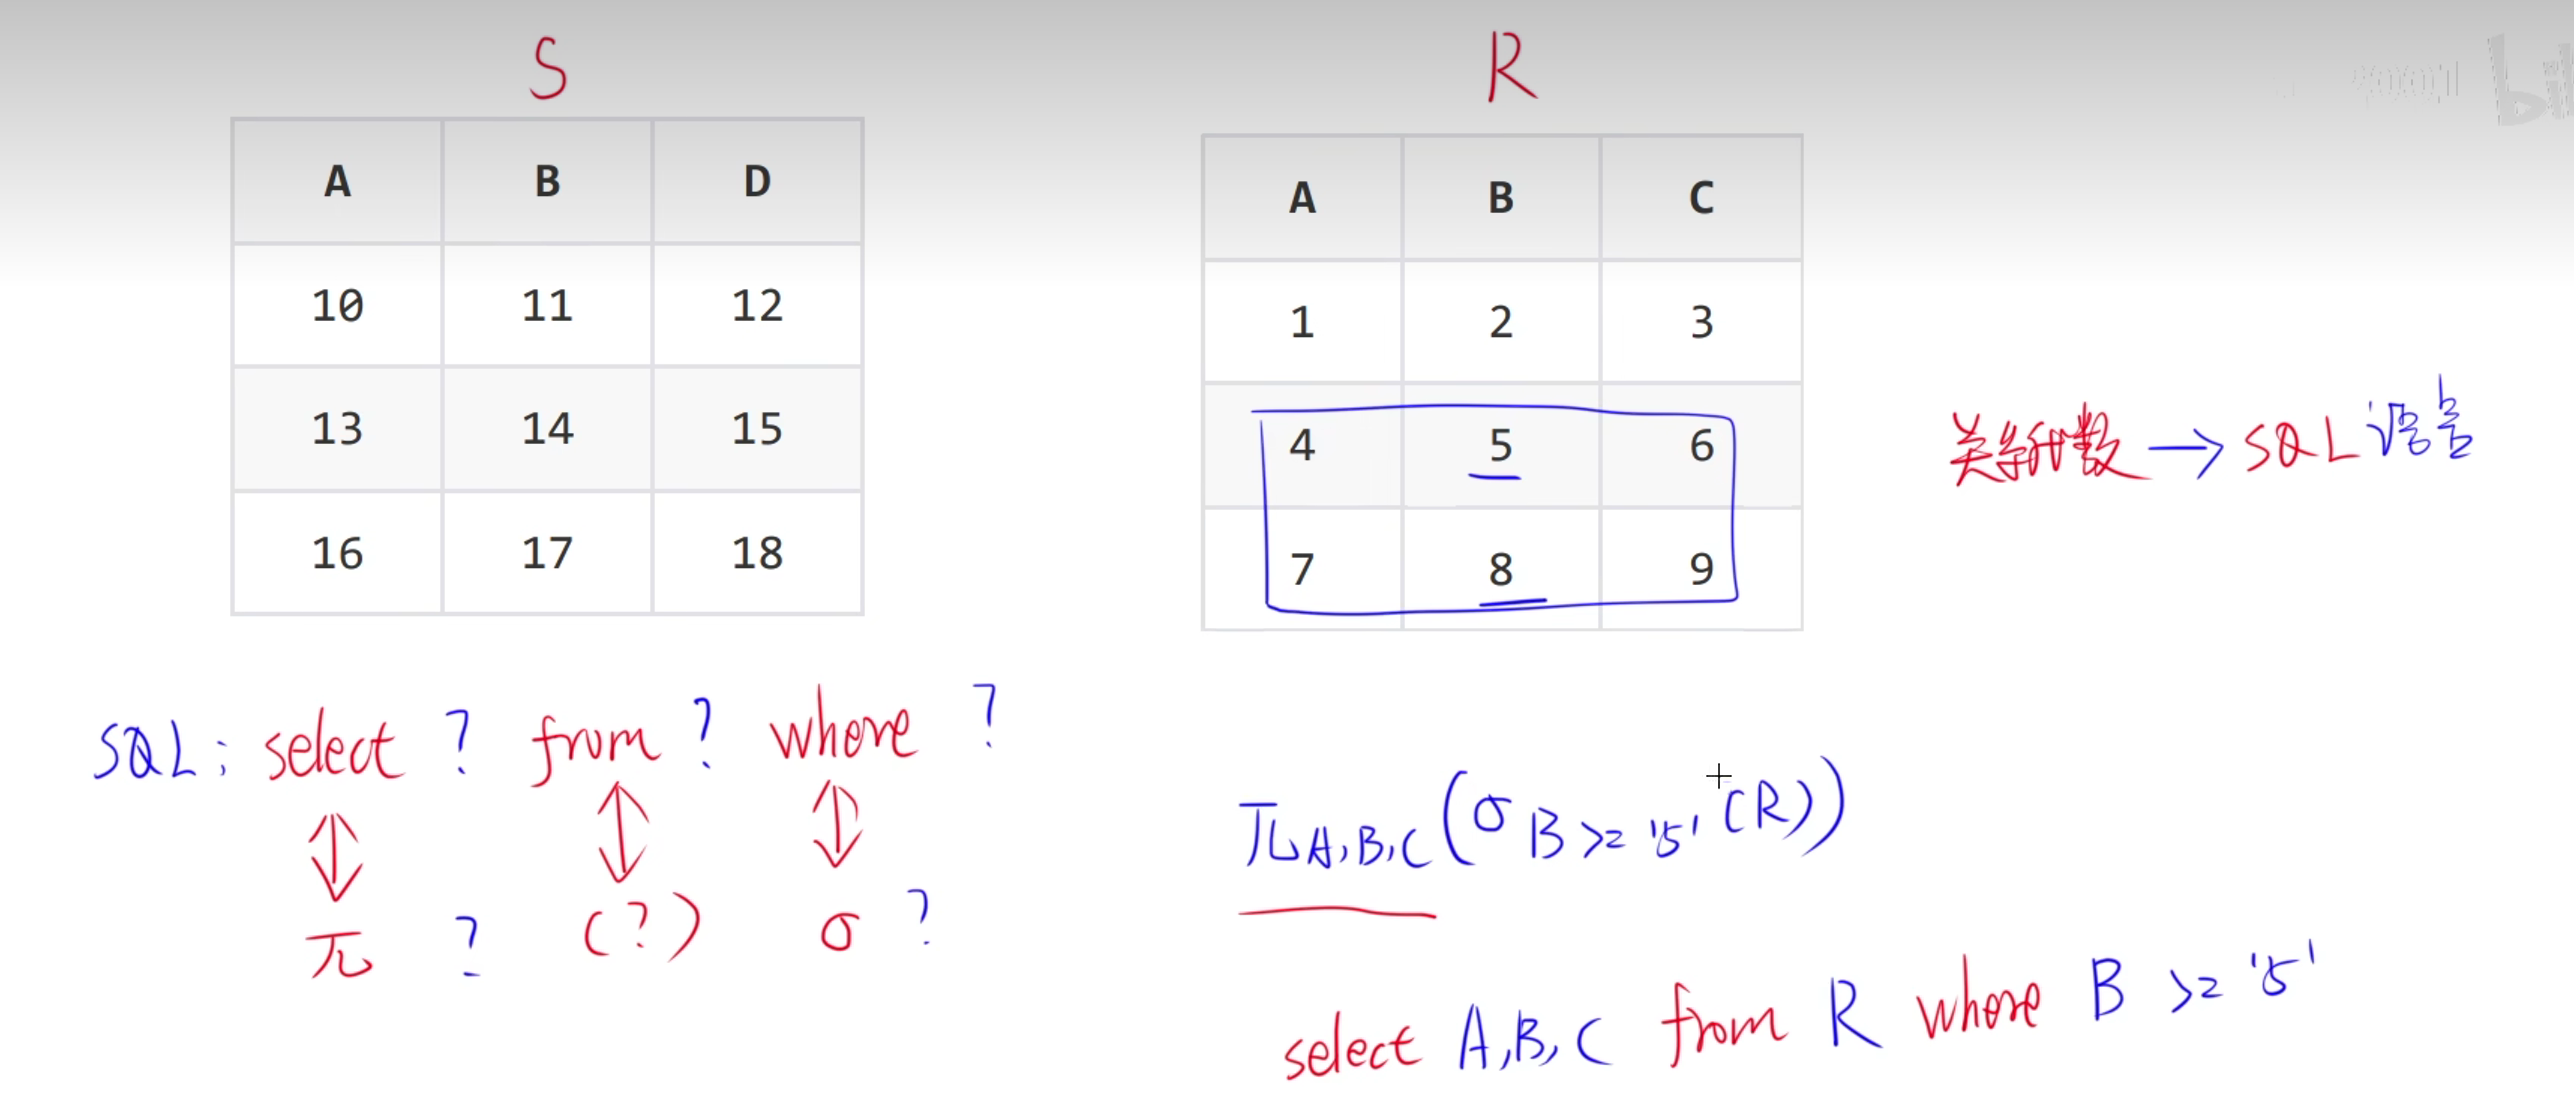 S
R
A B D
10 11 12
13 14 15
16 17 18
A B C
1 2 3
4 5 6
7 8 9
关系代数 → SQL 语言
SQL: select ? from ? where ?
π ? (?) σ ?
π A,B,C (σ B >= '5' (R))
select A,B,C from R where B >= '5'